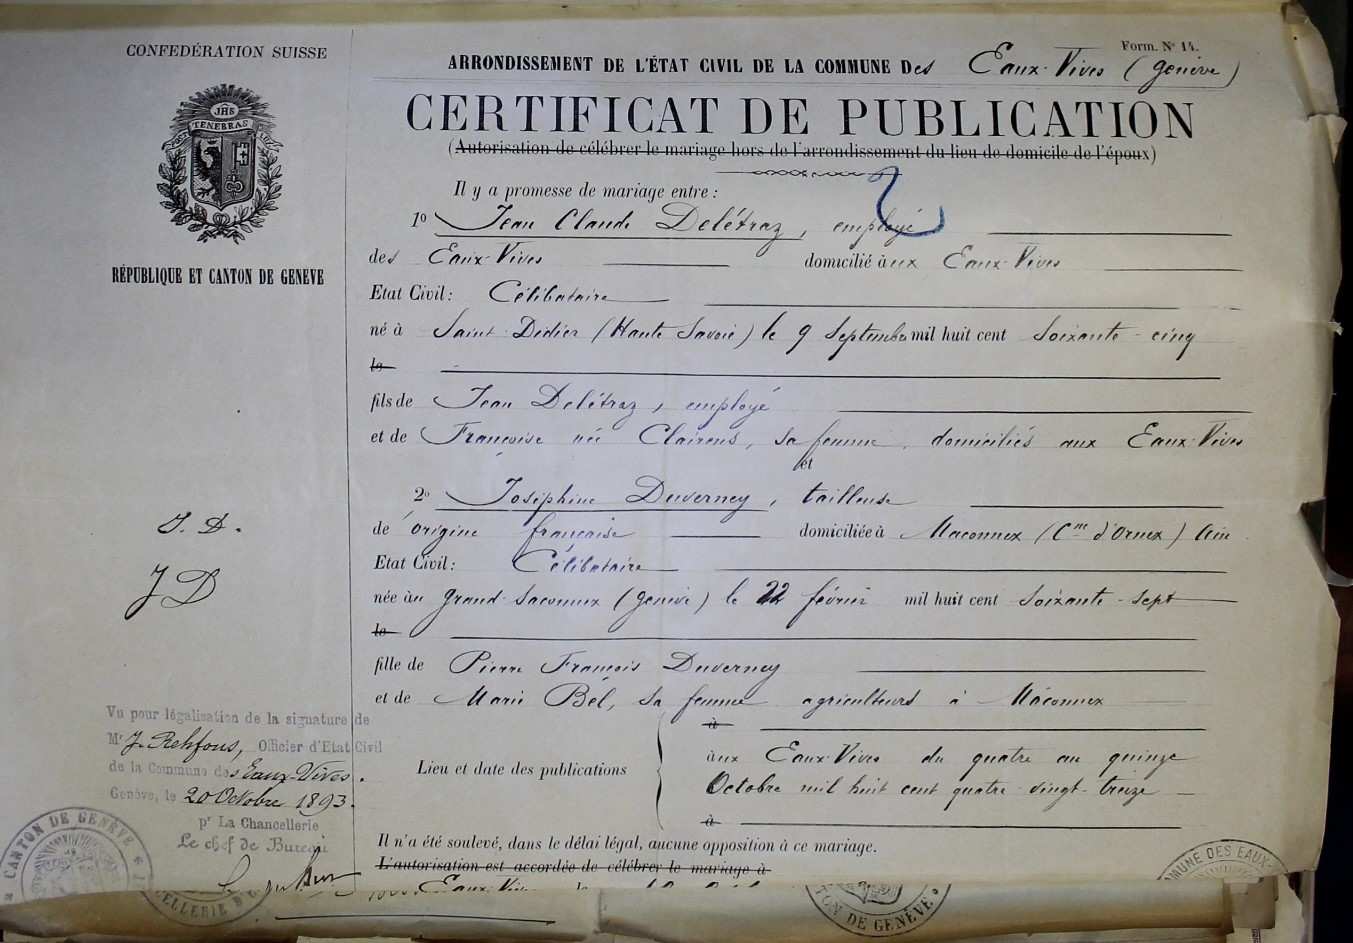 CONFEDÉRATION SUISSE
JHS
TENEBRAS
RÉPUBLIQUE ET CANTON DE GENÈVE
Form. No 14.
ARRONDISSEMENT DE L'ÉTAT CIVIL DE LA COMMUNE Des Eaux-Vives (Genève)
CERTIFICAT DE PUBLICATION
(Autorisation de célébrer le mariage hors de l'arrondissement du lieu de domicile de l'époux)
Il y a promesse de mariage entre :
1o Jean Claude Delétraz, employé
des Eaux-Vives domicilié aux Eaux-Vives
Etat Civil: Célibataire
né à Saint-Didier (Haute Savoie) le 9 Septembre mil huit cent soixante-cinq
le
fils de Jean Delétraz, employé
et de Françoise née Clairens, sa femme, domiciliés aux Eaux-Vives
et
2o Joséphine Duverney, tailleuse
de origine française domiciliée à Maconnex (Cne d'Ornex) Ain
Etat Civil: Célibataire
née au Grand-Saconnex (Genève) le 22 février mil huit cent soixante-sept
le
fille de Pierre François Duverney
et de Marie Bel, sa femme agriculteurs à Maconnex
à
Lieu et date des publications
aux Eaux-Vives du quatre au quinze
Octobre mil huit cent quatre-vingt-treize
à
Il n'a été soulevé, dans le délai légal, aucune opposition à ce mariage.
L'autorisation est accordée de célébrer le mariage à
Eaux-Vives
J. D.
J D
Vu pour légalisation de la signature de
Mr J. Rehfous, Officier d'Etat Civil
de la Commune des Eaux-Vives.
Genève, le 20 Octobre 1893.
pr La Chancellerie
Le chef de Bureau
CANTON DE GENÈVE
CELLERIE D
TON DE GENÈVE
MUNE DES EAUX-